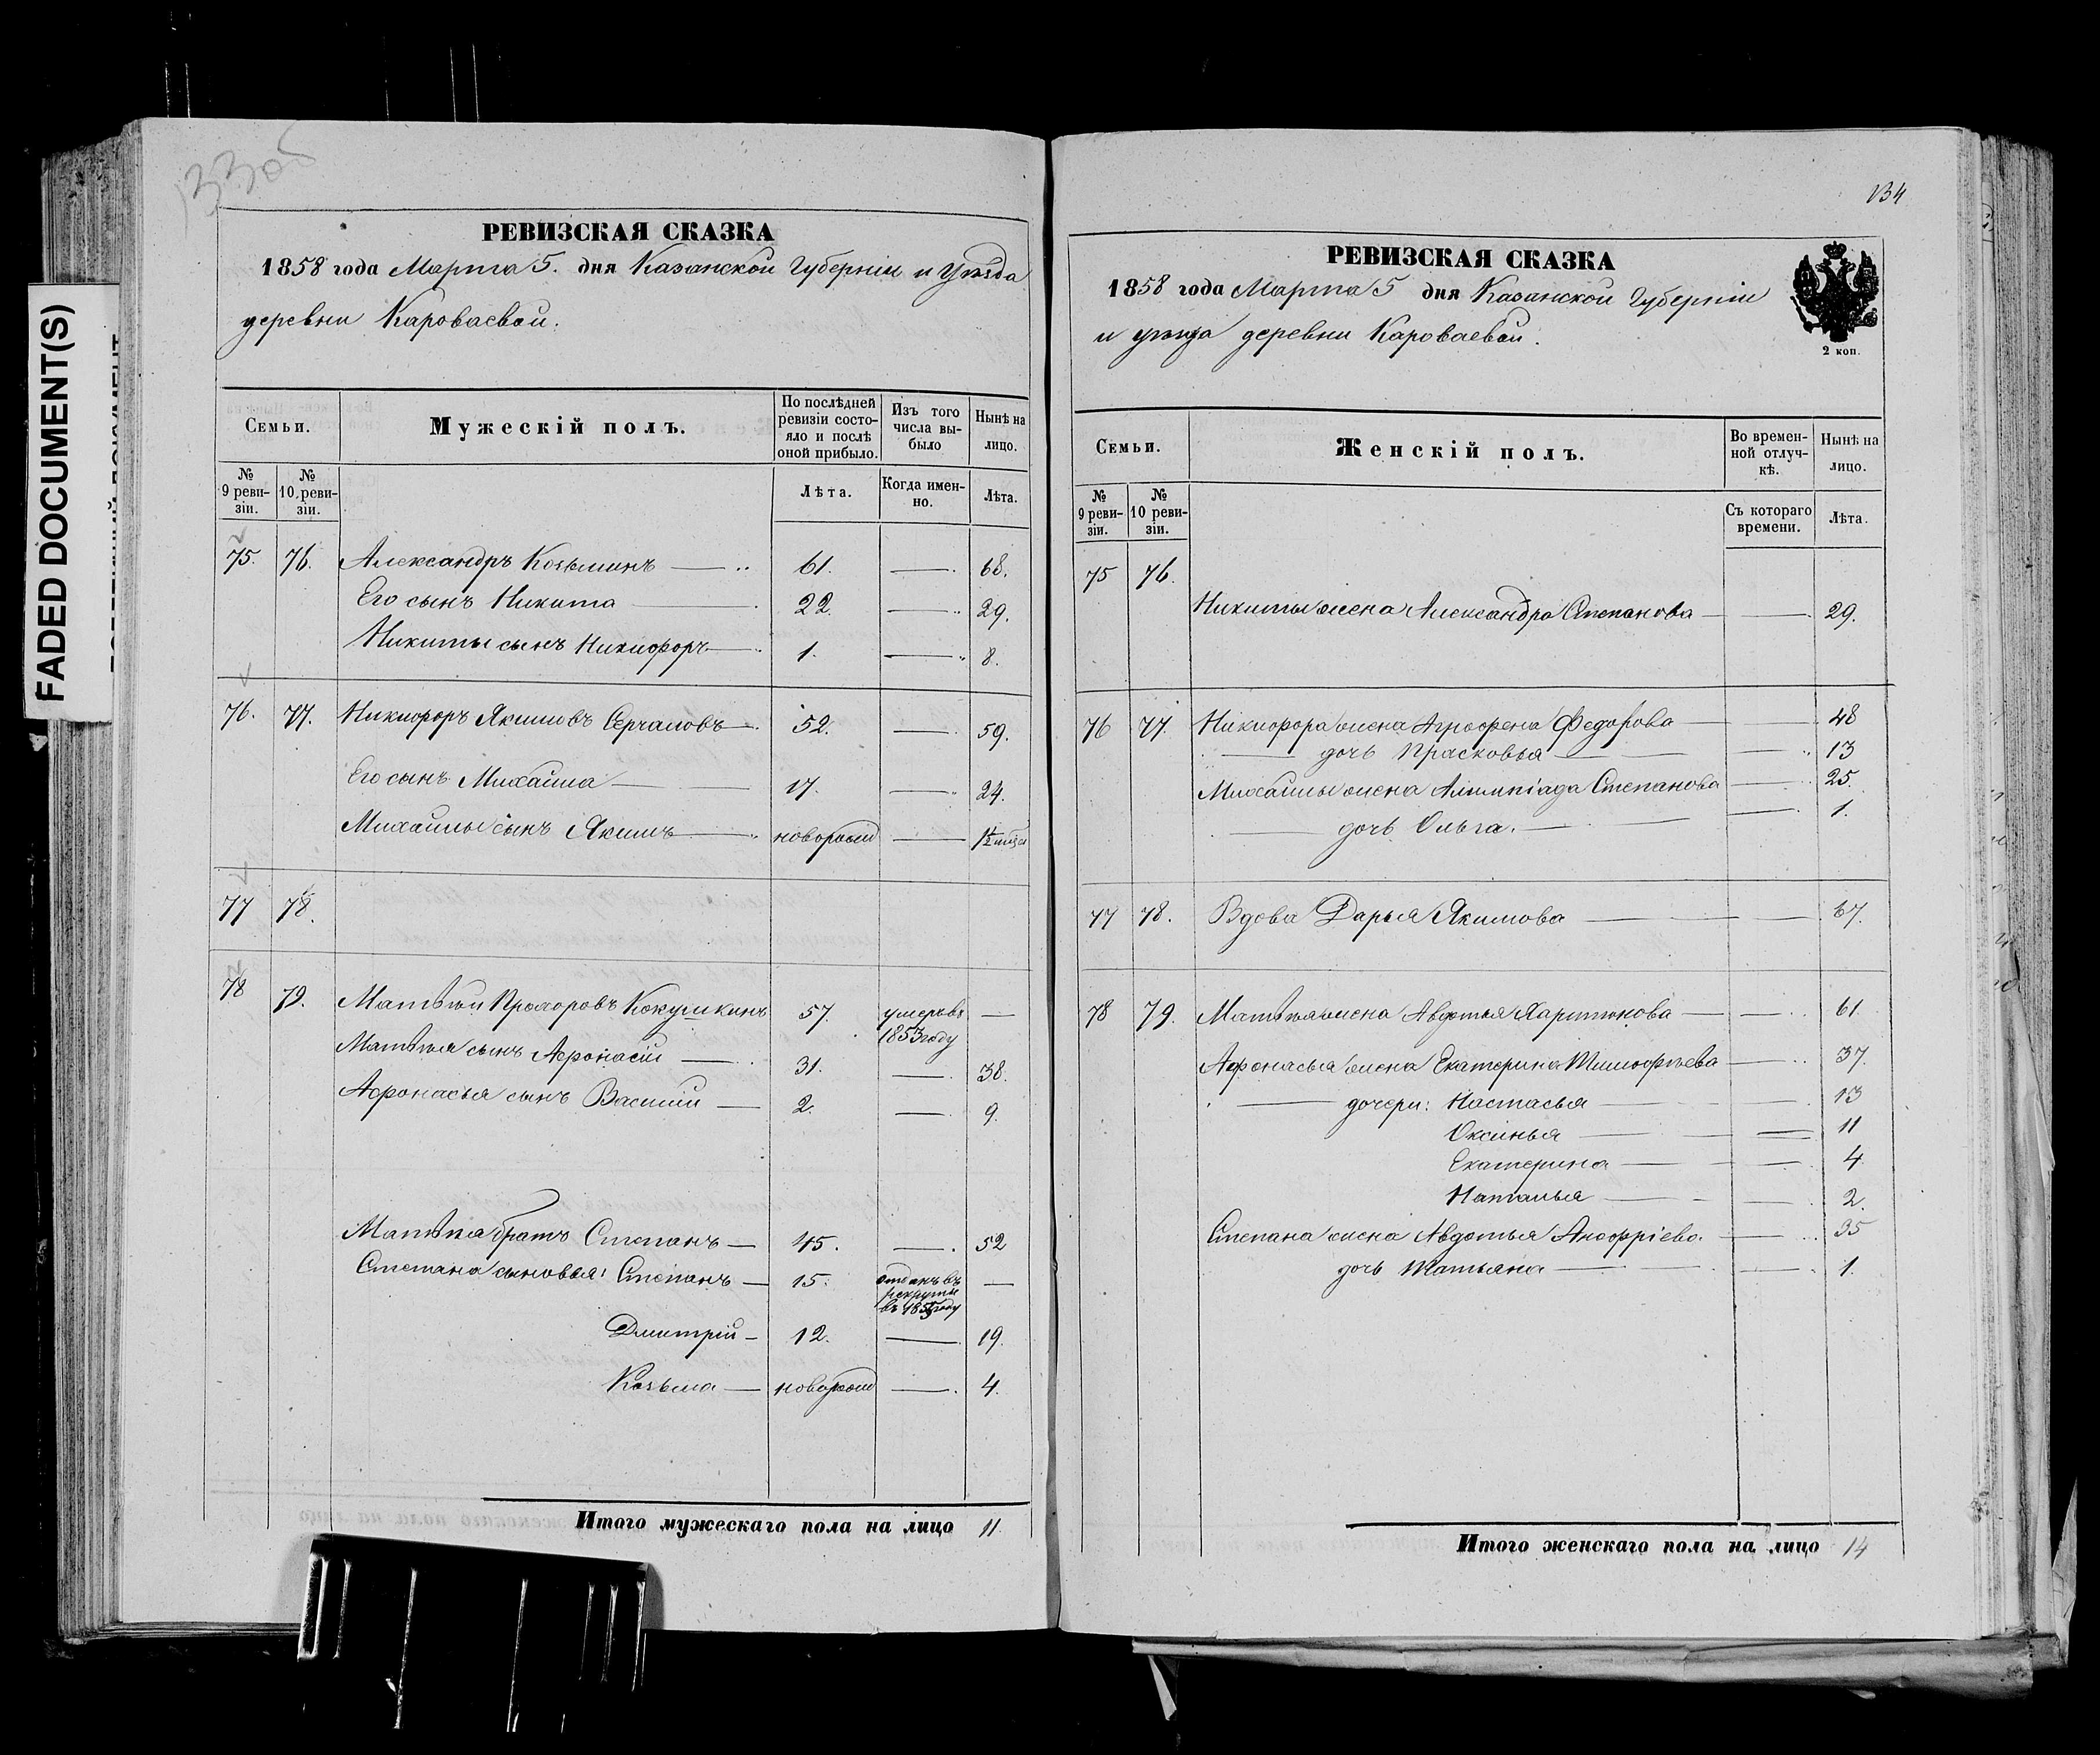 FADED DOCUMENT(S)
133об
РЕВИЗСКАЯ СКАЗКА
1858 года Марта 5. дня Казанской Губерніи и Уѣзда
деревни Кароваевой.
Семьи.
Мужескій полъ.
По послѣдней ревизіи состояло и послѣ оной прибыло.
Изъ того числа выбыло
Нынѣ на лицо.
№ 9 ревизіи.
№ 10 ревизіи.
Лѣта.
Когда именно.
Лѣта.
75. 76. Александръ Козьминъ — 61. — 68.
Его сынъ Никита — 22. — 29.
Никиты сынъ Никифоръ — 1. — 8.
76. 77. Никифоръ Якимовъ — 52. — 59.
Его сынъ Михайла — 17. — 24.
Михайлы сынъ Якимъ — новорожд — 1½
77 78.
78 79. Матвѣй Прохоровъ Кокушкинъ 57. умеръ въ 1853 году —
Матвѣя сынъ Афонасій — 31. — 38.
Афонасья сынъ Василій — 2. — 9.
Матвѣя братъ Степанъ — 45. — 52
Степана сыновья: Степанъ — 15. отданъ въ рекруты въ году —
Дмитрій — 12. — 19.
Козьма — новорожд — 4.
Итого мужескаго пола на лицо 11.
134
РЕВИЗСКАЯ СКАЗКА
1858 года Марта 5 дня Казанской Губерніи
и уѣзда деревни Кароваевой.
2 коп.
Семьи.
Женскій полъ.
Во временной отлучкѣ.
Нынѣ на лицо.
№ 9 ревизіи.
№ 10 ревизіи.
Съ котораго времени.
Лѣта.
75 76.
Никиты жена Александра Степанова — — 29.
76 77. Никифора жена Агрофена Федорова — — 48
— дочь Прасковья — — 13
Михайлы жена Алимпіада Степанова — 25.
дочь Ольга. — — 1.
77 78. Вдова Дарья Якимова — — 67.
78 79. Матвѣя жена Авдотья Харитонова — — 61
Афонасья жена Екатерина Тимофѣева — 37.
— дочери: Настасья — — 13
Оксинья — — 11
Екатерина — — 4
Наталья — — 2.
Степана жена Авдотья Анофріева. — 35
дочь Татьяна — — 1.
Итого женскаго пола на лицо 14